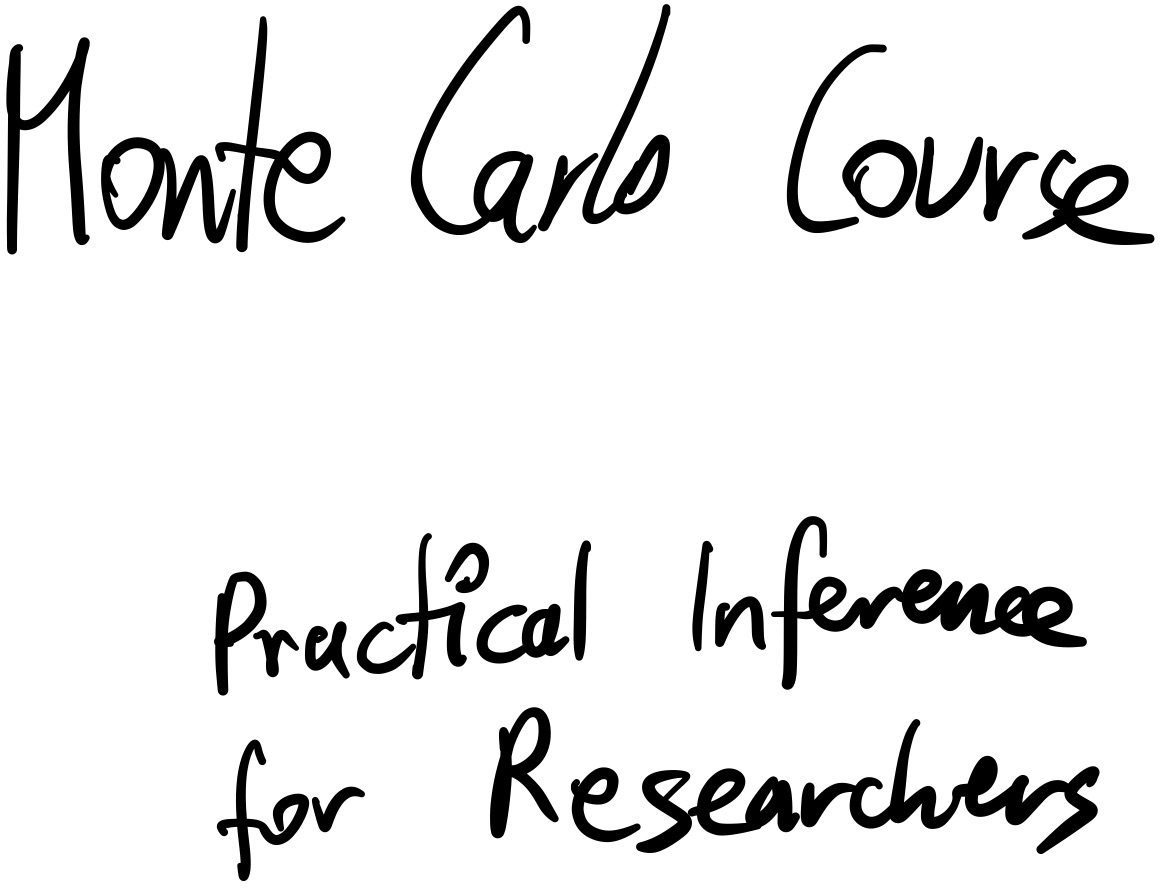 Monte Carlo Course
Practical Inference
for Researchers